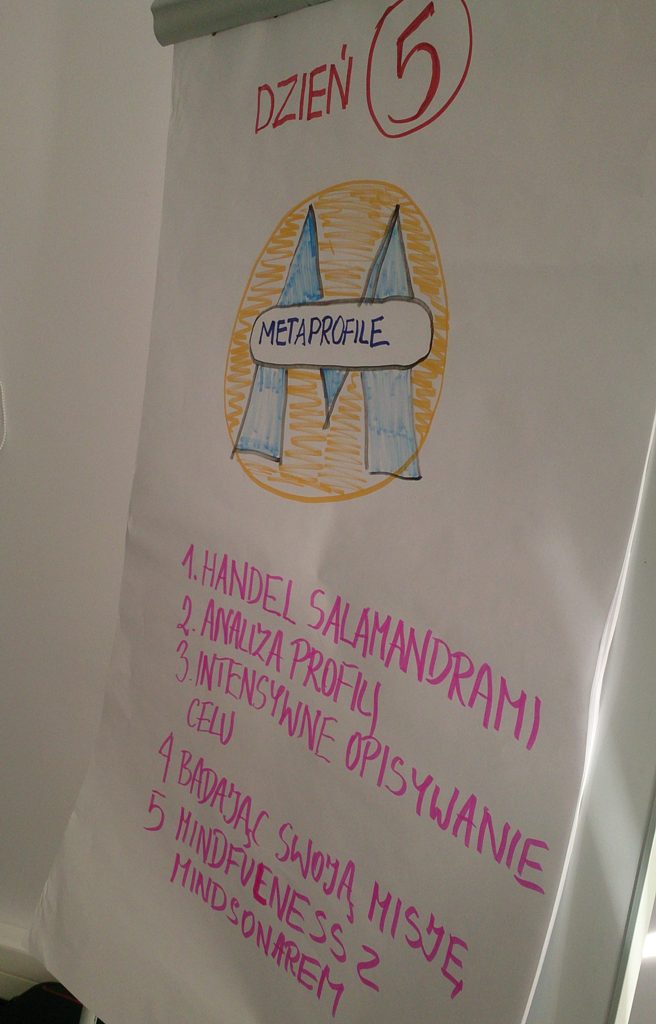 DZIEŃ 5
METAPROFILE
1. HANDEL SALAMANDRAMI
2. ANALIZA PROFILI
3. INTENSYWNE OPISYWANIE
CELU
4 BADAJĄC SWOJĄ MISJĘ
5 MINDFULNESS Z
MINDSONAREM